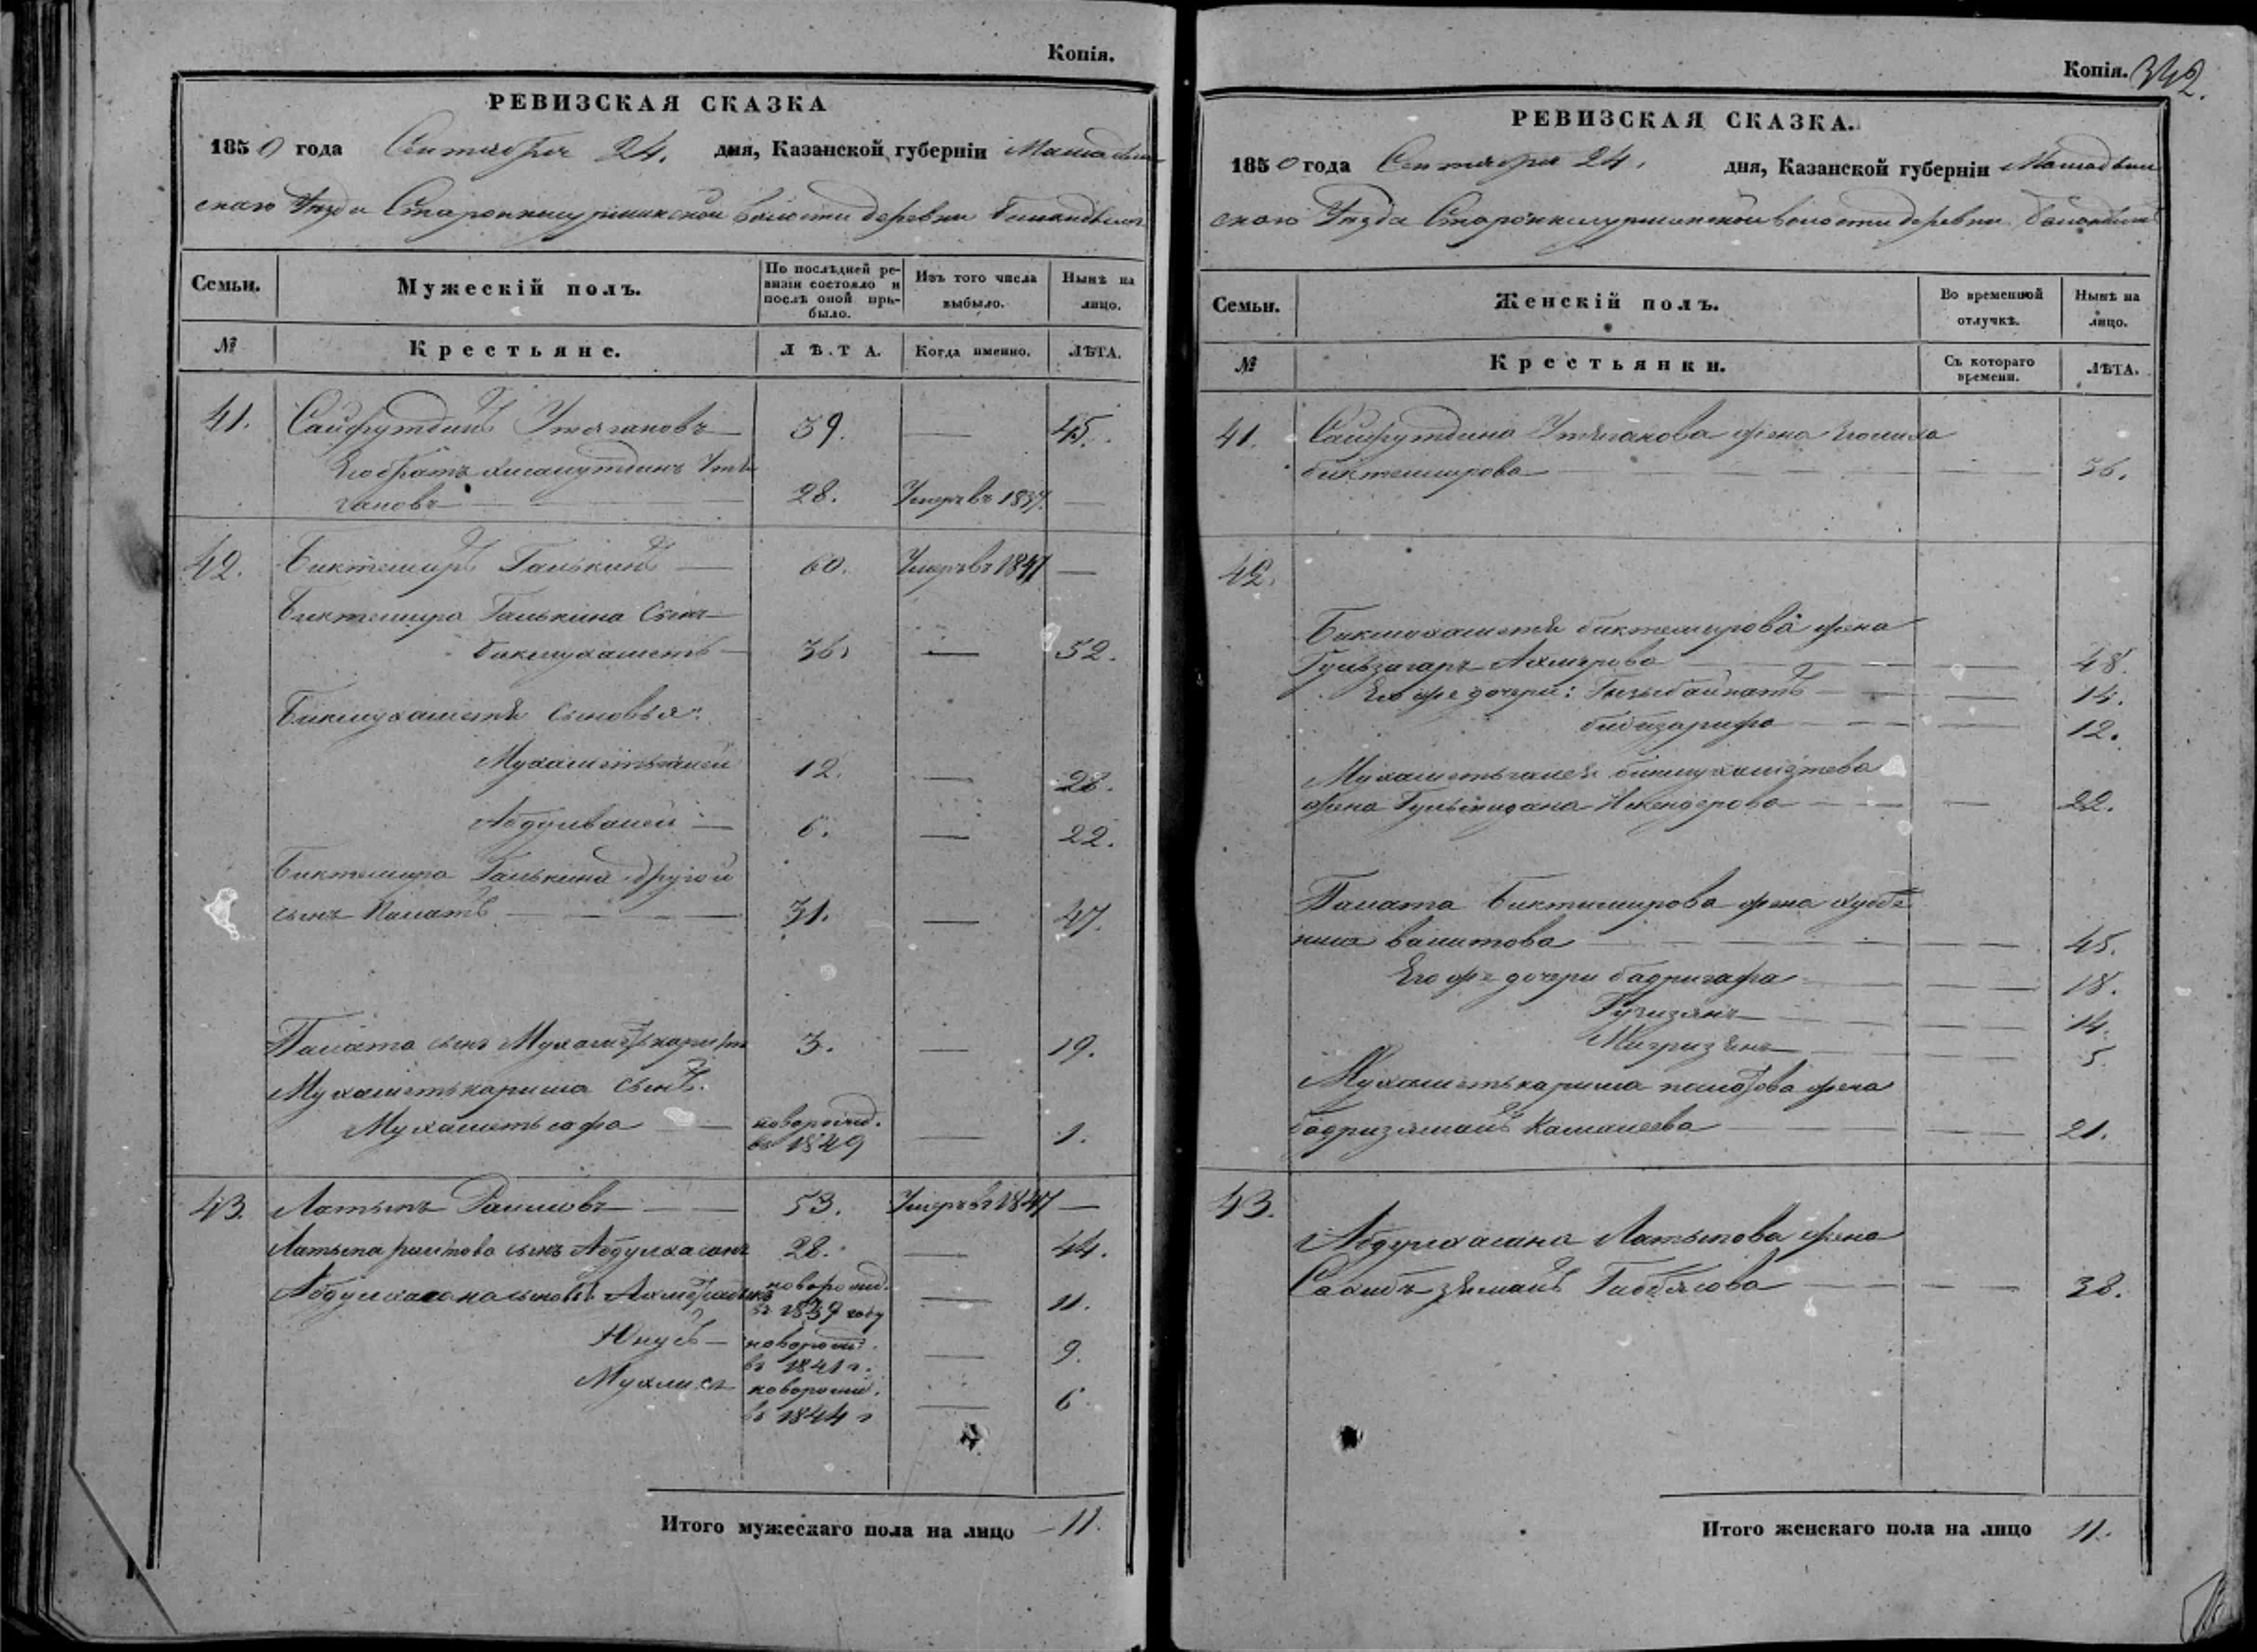 Копія.
РЕВИЗСКАЯ СКАЗКА
1850 года Сентября 24. дня, Казанской губерніи Мамадыш-
скаго Уѣзда волости деревни
Семьи. Мужескій полъ. По послѣдней ре-визіи состояло и послѣ оной при-было. Изъ того числа выбыло. Нынѣ на лицо.
№ Крестьяне. ЛѢТА. Когда именно. ЛѢТА.
41. Сайфутдинъ Утягановъ 39. — 45.
Его братъ Хисамутдинъ Утя-
гановъ 28. Умеръ въ 1837. —
42. Биктемиръ Галькинъ — 60. Умеръ въ 1847 —
Биктемира Галькина Сынъ
Бикмухаметь — 36. — 52.
Бикмухаметя сыновья:
Мухаметьганей 12. — 28.
Абдулваней — 6. — 22.
Биктемира Галькина другой
сынъ Паматъ — 31. — 47.
Памата сынъ Мухаметькаримъ 3. — 19.
Мухаметькарима сынъ.
Мухаметьсафа — новорожд. въ 1849 — 1.
43. Латыпъ — 53. Умеръ въ 1847 —
Латыпа сынъ Абдулхасанъ 28. — 44.
Абдулхасана сыновья новорожд. въ 1839 году — 11.
Юнусъ — новорожд. въ 1841 г. — 9.
Мухлисъ новорожд. въ 1844 г — 6
Итого мужескаго пола на лицо — 11.
Копія. 342.
РЕВИЗСКАЯ СКАЗКА.
1850 года Сентября 24. дня, Казанской губерніи Мамадыш-
скаго Уѣзда волости деревни
Семьи. Женскій полъ. Во временной отлучкѣ. Нынѣ на лицо.
№ Крестьянки. Съ котораго времени. ЛѢТА.
41. Сайфутдина Утяганова жена
Биктемирова — — 36.
42.
Бикмухаметя Биктемирова жена
Гульзагаръ — — 48.
Его же дочери: — — 14.
Бибизарифа — — 12.
Мухаметьганея Бикмухаметева
жена — — 22.
Памата Биктимирова жена Хубби-
ниса Валитова — — 45.
Его же дочери Бадригафа — — 18.
— — 14.
— — 5.
Мухаметькарима Паматова жена
Бадризяманъ — — 21.
43.
Абдулхасана Латыпова жена
Сахибъ зямалъ — — 38.
Итого женскаго пола на лицо 11.